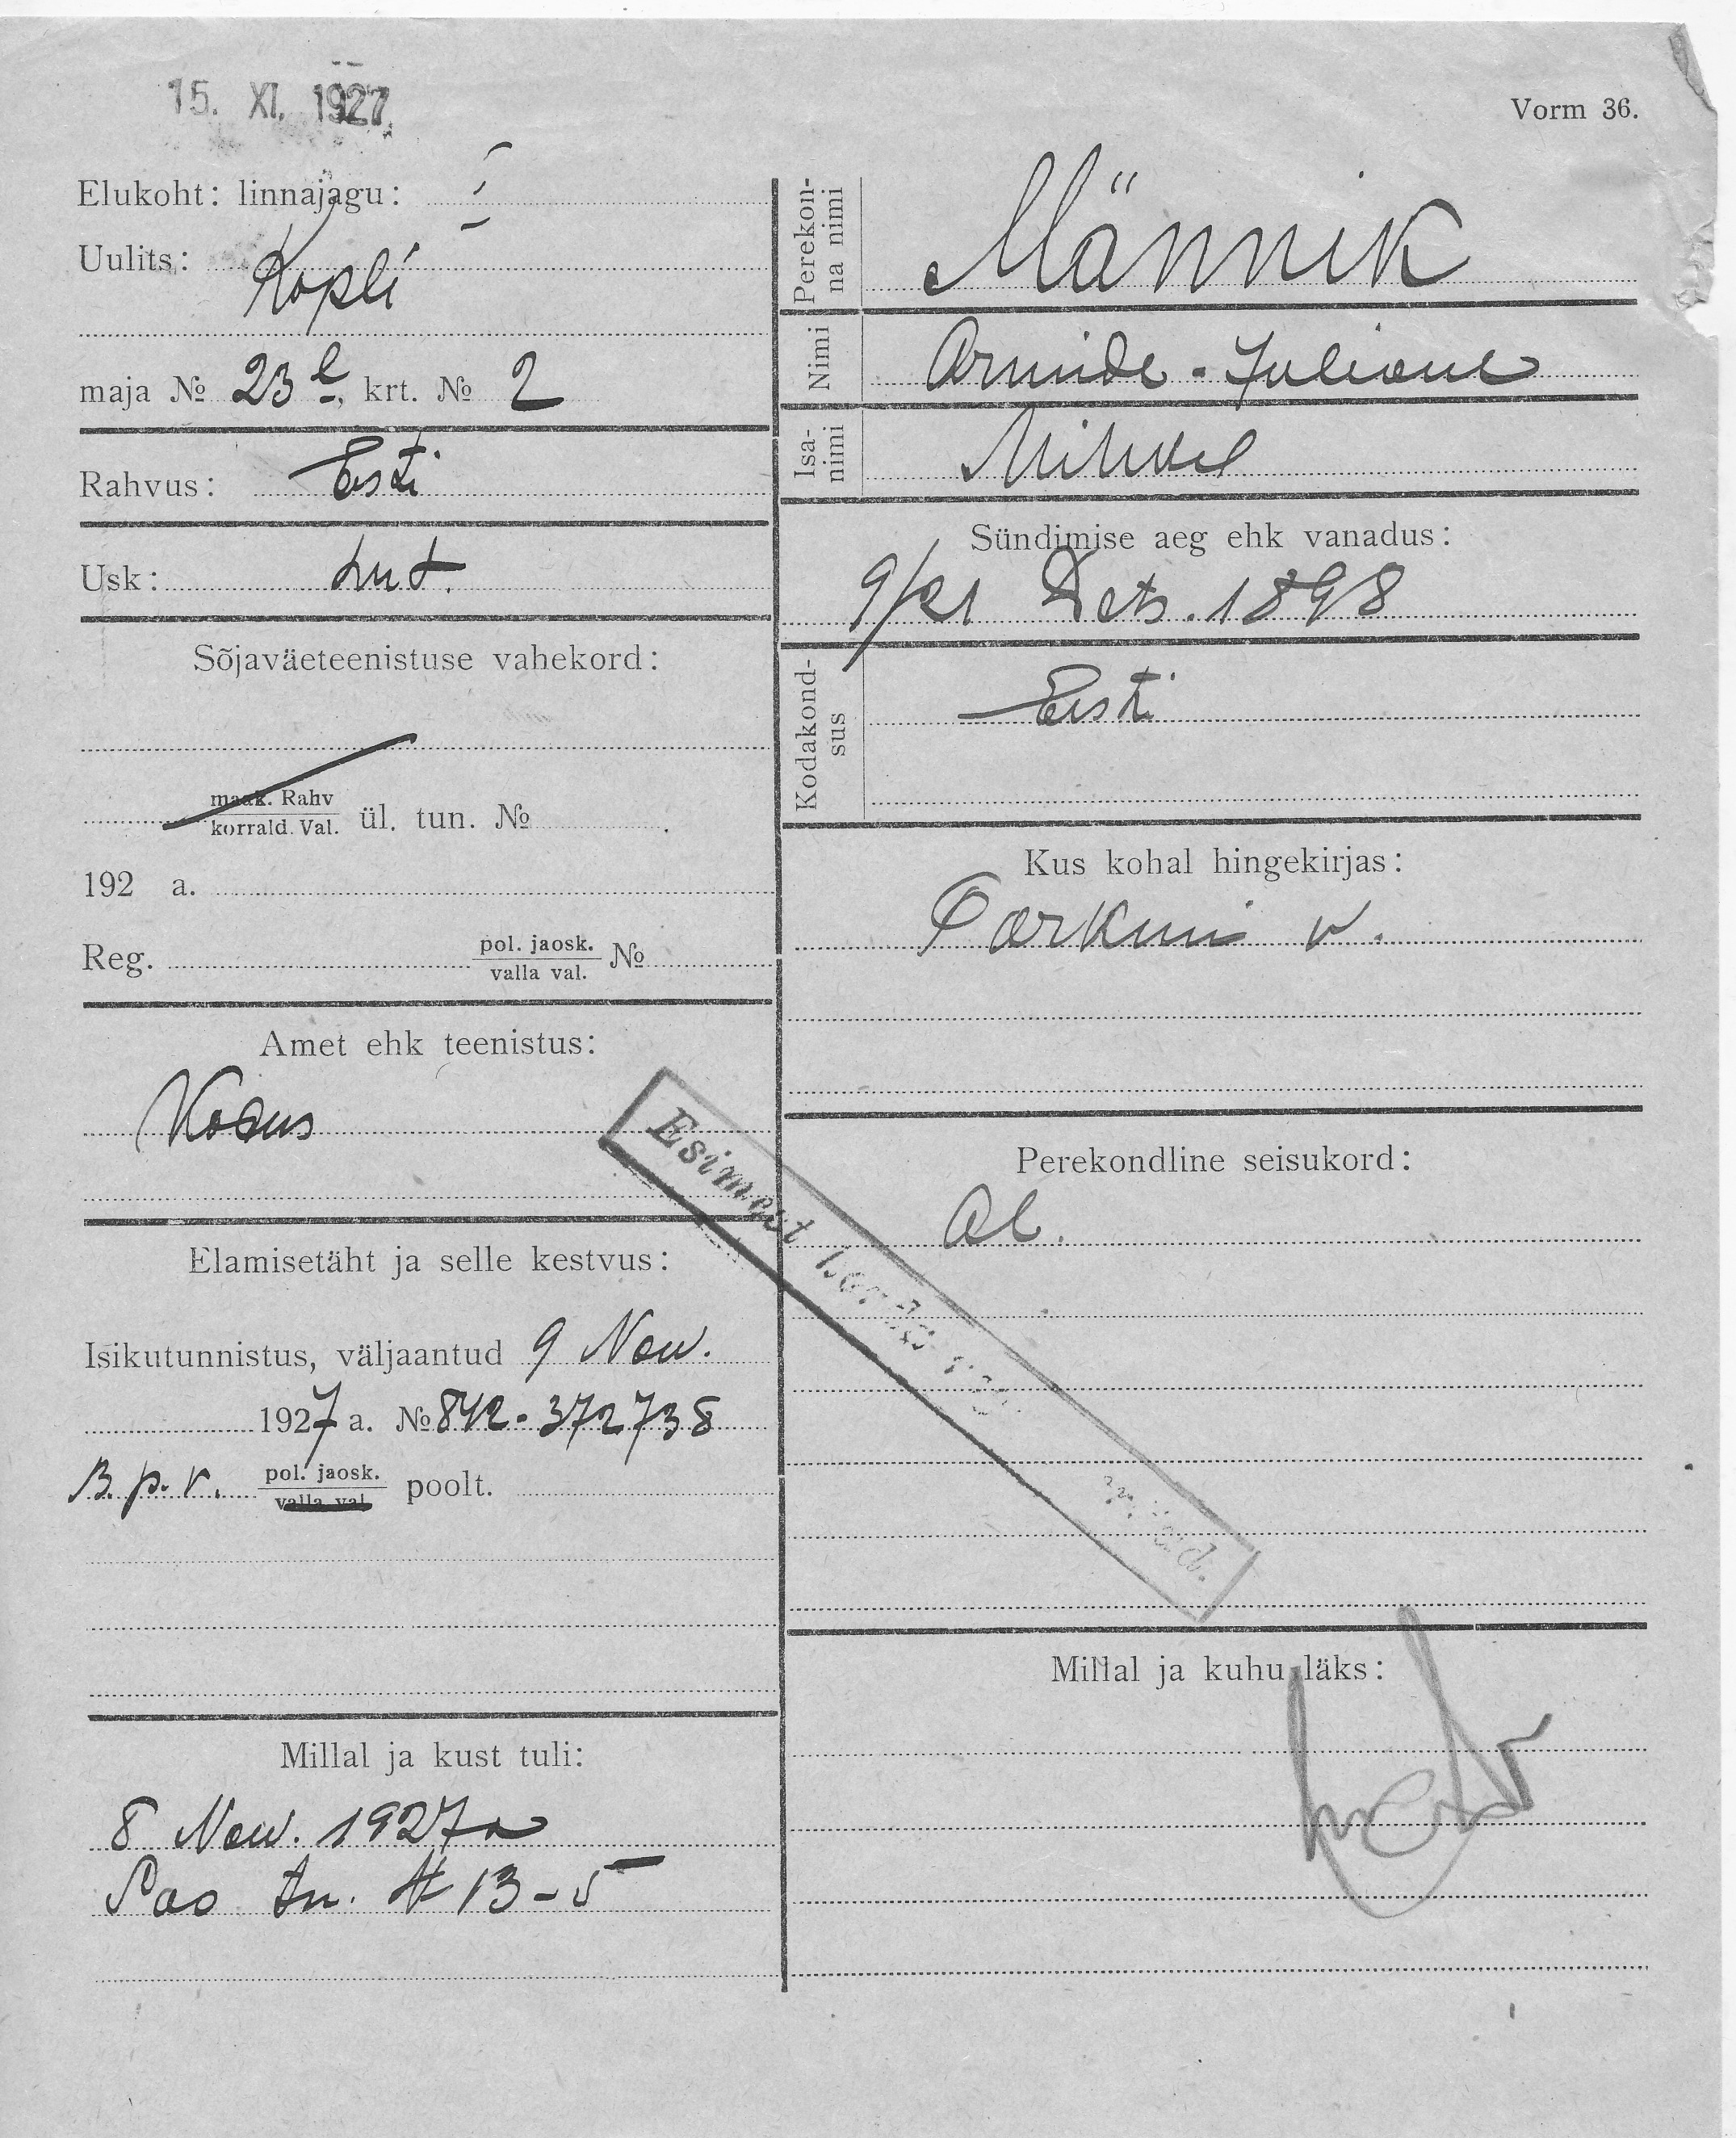 15. XI. 1927.
Vorm 36.
Elukoht: linnajagu:
Uulits: Kopli
maja № 23 b, krt. № 2
Rahvus: Eesti
Usk: Lut.
Sõjaväeteenistuse vahekord:
maak. Rahv
korrald. Val. ül. tun. №
192 a.
Reg. pol. jaosk. №
valla val.
Amet ehk teenistus:
Elamisetäht ja selle kestvus:
Isikutunnistus, väljaantud 9 Now.
1927 a. № 842-372738
B. p. r. pol. jaosk. poolt.
valla val.
Millal ja kust tuli:
8 Now. 1927 a
13-5
Perekonna nimi
Männik
Nimi
Armide-Juliane
Isanimi
Mihkel
Sündimise aeg ehk vanadus:
9/21 Dets. 1898
Kodakondsus
Eesti
Kus kohal hingekirjas:
Porkuni v.
Perekondline seisukord:
Esimest korda
Millal ja kuhu läks: